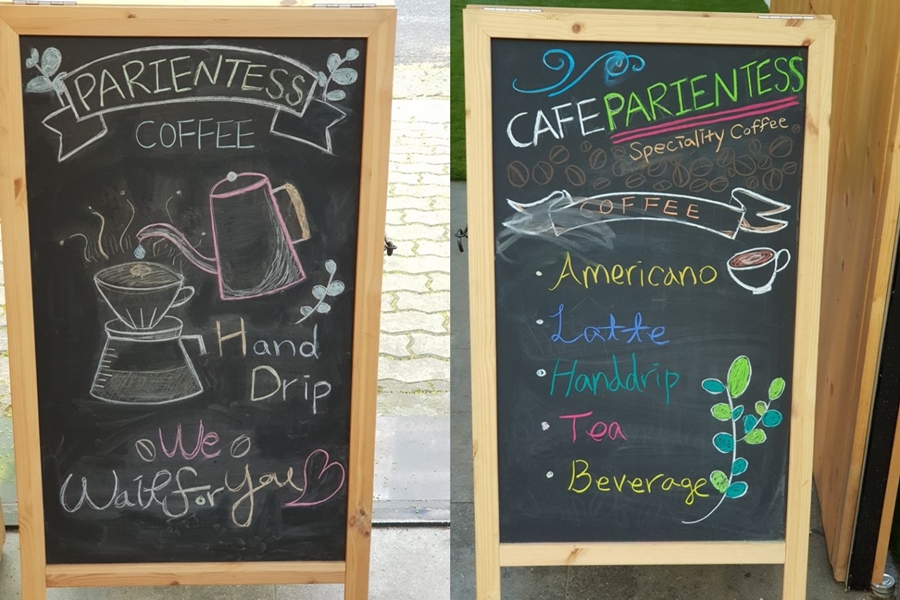 PARIENTESS
COFFEE
Hand
Drip
We
Wait for You
CAFE PARIENTESS
Speciality Coffee
COFFEE
• Americano
• Latte
• Handdrip
• Tea
• Beverage